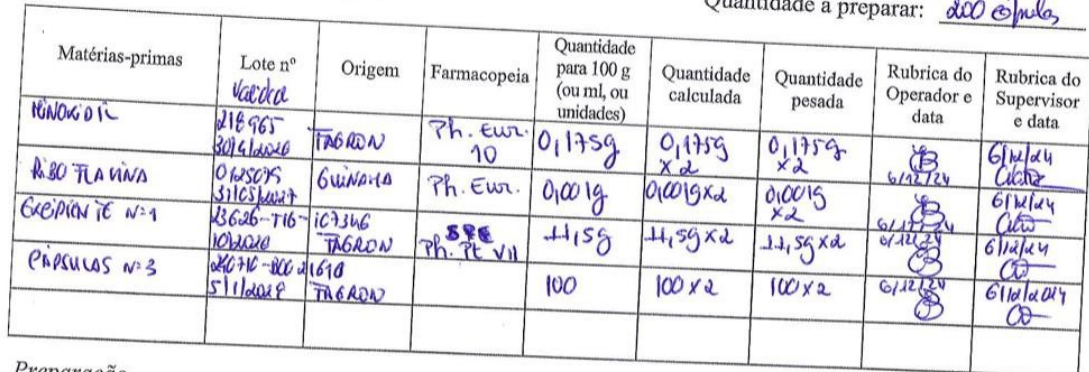 Quantidade a preparar: 200 cápsulas
Matérias-primas
Lote nº
Validade
Origem
Farmacopeia
Quantidade para 100 g (ou ml, ou unidades)
Quantidade calculada
Quantidade pesada
Rubrica do Operador e data
Rubrica do Supervisor e data
MINOXIDIL 218965 30/4/2026 FAGRON Ph. Eur. 10 0,175g 0,175g x2 0,175g x2 6/12/24 6/12/24
RIBOFLAVINA 31/05/2027 GUINAMA Ph. Eur. 0,001g 0,001gx2 0,001g x2 6/12/24 6/12/24
EXCIPIENTE Nº1 10/2026 FAGRON Ph. PT VII 11,5g 11,5gx2 11,5gx2 6/12/24 6/12/24
CÁPSULAS Nº3 FAGRON 100 100x2 100x2 6/12/24 6/12/2024
Preparação